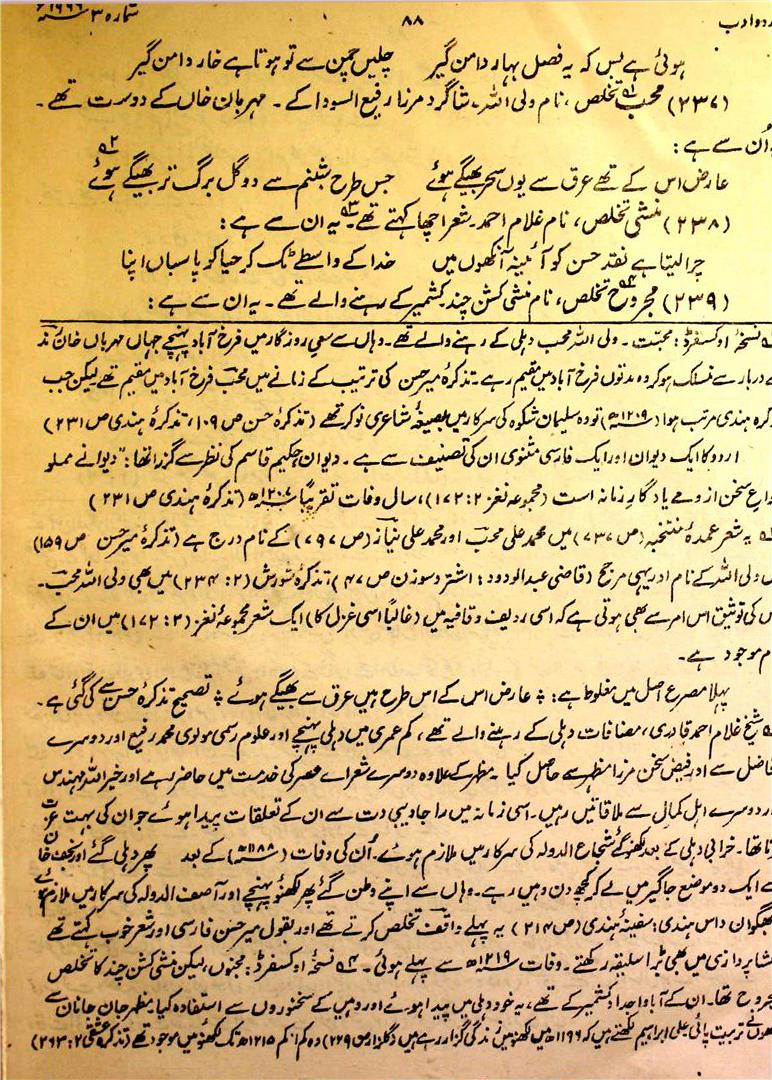 شمارہ ۳ ۱۹۶۶ء ۸۸ ردو ادب
ہوئی ہے بس کہ یہ فصل بہار دامن گیر چلیں چمن سے تو ہوتا ہے خار دامن گیر
(۲۳۷) محب تخلص، نام ولی اللہ، شاگرد مرزا رفیع السودا کے۔ مہربان خاں کے دوست تھے۔
اُن سے ہے:
عارض اس کے تھے عرق سے یوں سحر بھیگے ہوئے جس طرح شبنم سے دو گل برگ تر بھیگے ہوئے
(۲۳۸) منشی تخلص، نام غلام احمد۔ شعر اچھا کہتے تھے۔ یہ ان سے ہے:
چرا لیتا ہے نقد حسن کو آئینہ آنکھوں میں خدا کے واسطے ٹک کر حیا کو پاسباں اپنا
(۲۳۹) مجروح تخلص، نام منشی کشن چند۔ کشمیر کے رہنے والے تھے۔ یہ ان سے ہے:
نسخۂ اوکسفرڈ: محبت۔ ولی اللہ محب دہلی کے رہنے والے تھے۔ وہاں سے سعیِ روزگار میں فرخ آباد پہنچے جہاں مہرباں خاں رند
ے دربار سے منسلک ہو کر وہ مدتوں فرخ آباد میں مقیم رہے۔ تذکرۂ میر حسن کی ترتیب کے زمانے میں محب فرخ آباد میں مقیم تھے لیکن جب
کرہ ہندی مرتب ہوا (۱۲۰۹ھ) تو وہ سلیمان شکوہ کی سرکار میں بصیغۂ شاعری نوکر تھے (تذکرۂ حسن ص ۱۰۹، تذکرۂ ہندی ص ۲۳۱)
اردو کا ایک دیوان اور ایک فارسی مثنوی ان کی تصنیف سے ہے۔ دیوان حکیم قاسم کی نظر سے گزرا تھا: "دیوانے مملو
واع سخن از وے یادگارِ زمانہ است (مجموعہ نغز ۲: ۱۷۲)، سال وفات تقریباً ۱۲۰۷ھ (تذکرۂ ہندی ص ۲۳۱)
یہ شعر عمدۂ منتخبہ (ص ۷۳۷) میں محمد علی محب اور محمد علی نیاز (ص ۷۹۷) کے نام درج ہے (تذکرۂ میر حسن ص ۱۵۹)
ں ولی اللہ کے نام اور یہی مرجح (قاضی عبدالودود: اشتر و سوزن ص ۴۷) تذکرۂ شورش (۲: ۲۳۴) میں بھی ولی اللہ محب۔
س کی توثیق اس امر سے بھی ہوتی ہے کہ اسی ردیف و قافیہ میں (غالباً اسی غزل کا) ایک شعر مجموعۂ نغز (۲: ۱۷۲) میں ان کے
م موجود ہے۔
پہلا مصرع اصل میں مغلوط ہے: عارض اس کے اس طرح ہیں عرق سے بھیگے ہوئے تصحیح تذکرۂ حسن سے کی گئی ہے۔
شیخ غلام احمد قادری، مضافات دہلی کے رہنے والے تھے، کم عمری میں دہلی پہنچے اور علوم رسمی مولوی محمد رفیع اور دوسرے
فاضل سے اور فیض سخن مرزا مظہر سے حاصل کیا۔ مظہر کے علاوہ دوسرے شعراے عصر کی خدمت میں حاضر رہے اور خیر اللہ مہندس
ر دوسرے اہل کمال سے ملاقاتیں رہیں۔ اسی زمانہ میں راجا دیبی دت سے ان کے تعلقات پیدا ہوئے جو ان کی بہت عزت
تا تھا۔ خرابی دہلی کے بعد لکھنؤ گئے شجاع الدولہ کی سرکار میں ملازم ہوئے۔ اُن کی وفات (۱۱۸۸ھ) کے بعد پھر دہلی گئے اور نجف خان
سے ایک دو موضع جاگیر میں لے کر کچھ دن وہیں رہے۔ وہاں سے اپنے وطن گئے پھر لکھنؤ پہنچے اور آصف الدولہ کی سرکار میں ملازم ہوئے
بھگوان داس ہندی: سفینۂ ہندی (ص ۲۱۴) یہ پہلے واقف تخلص کرتے تھے اور بقول میر حسن فارسی اور شعر خوب کہتے تھے
نشا پردازی میں بھی بڑا سلیقہ رکھتے۔ وفات ۱۲۱۹ھ سے پہلے ہوئی۔ نسخۂ اوکسفرڈ: مجنوں، لیکن منشی کشن چند کا تخلص
مجروح تھا۔ ان کے آبا و اجداد کشمیر کے تھے، یہ خود دہلی میں پیدا ہوئے اور وہیں کے سخنوروں سے استفادہ کیا۔ مظہر جان جاناں سے
تربیت پائی۔ علی ابراہیم لکھتے ہیں کہ ۱۱۹۶ھ میں لکھنؤ میں زندگی گزار رہے ہیں (گلزار ص ۲۲۹) وہ کم از کم ۱۲۱۵ھ تک لکھنؤ میں موجود تھے (تذکرہ عشقی ۲: ۲۶۳)